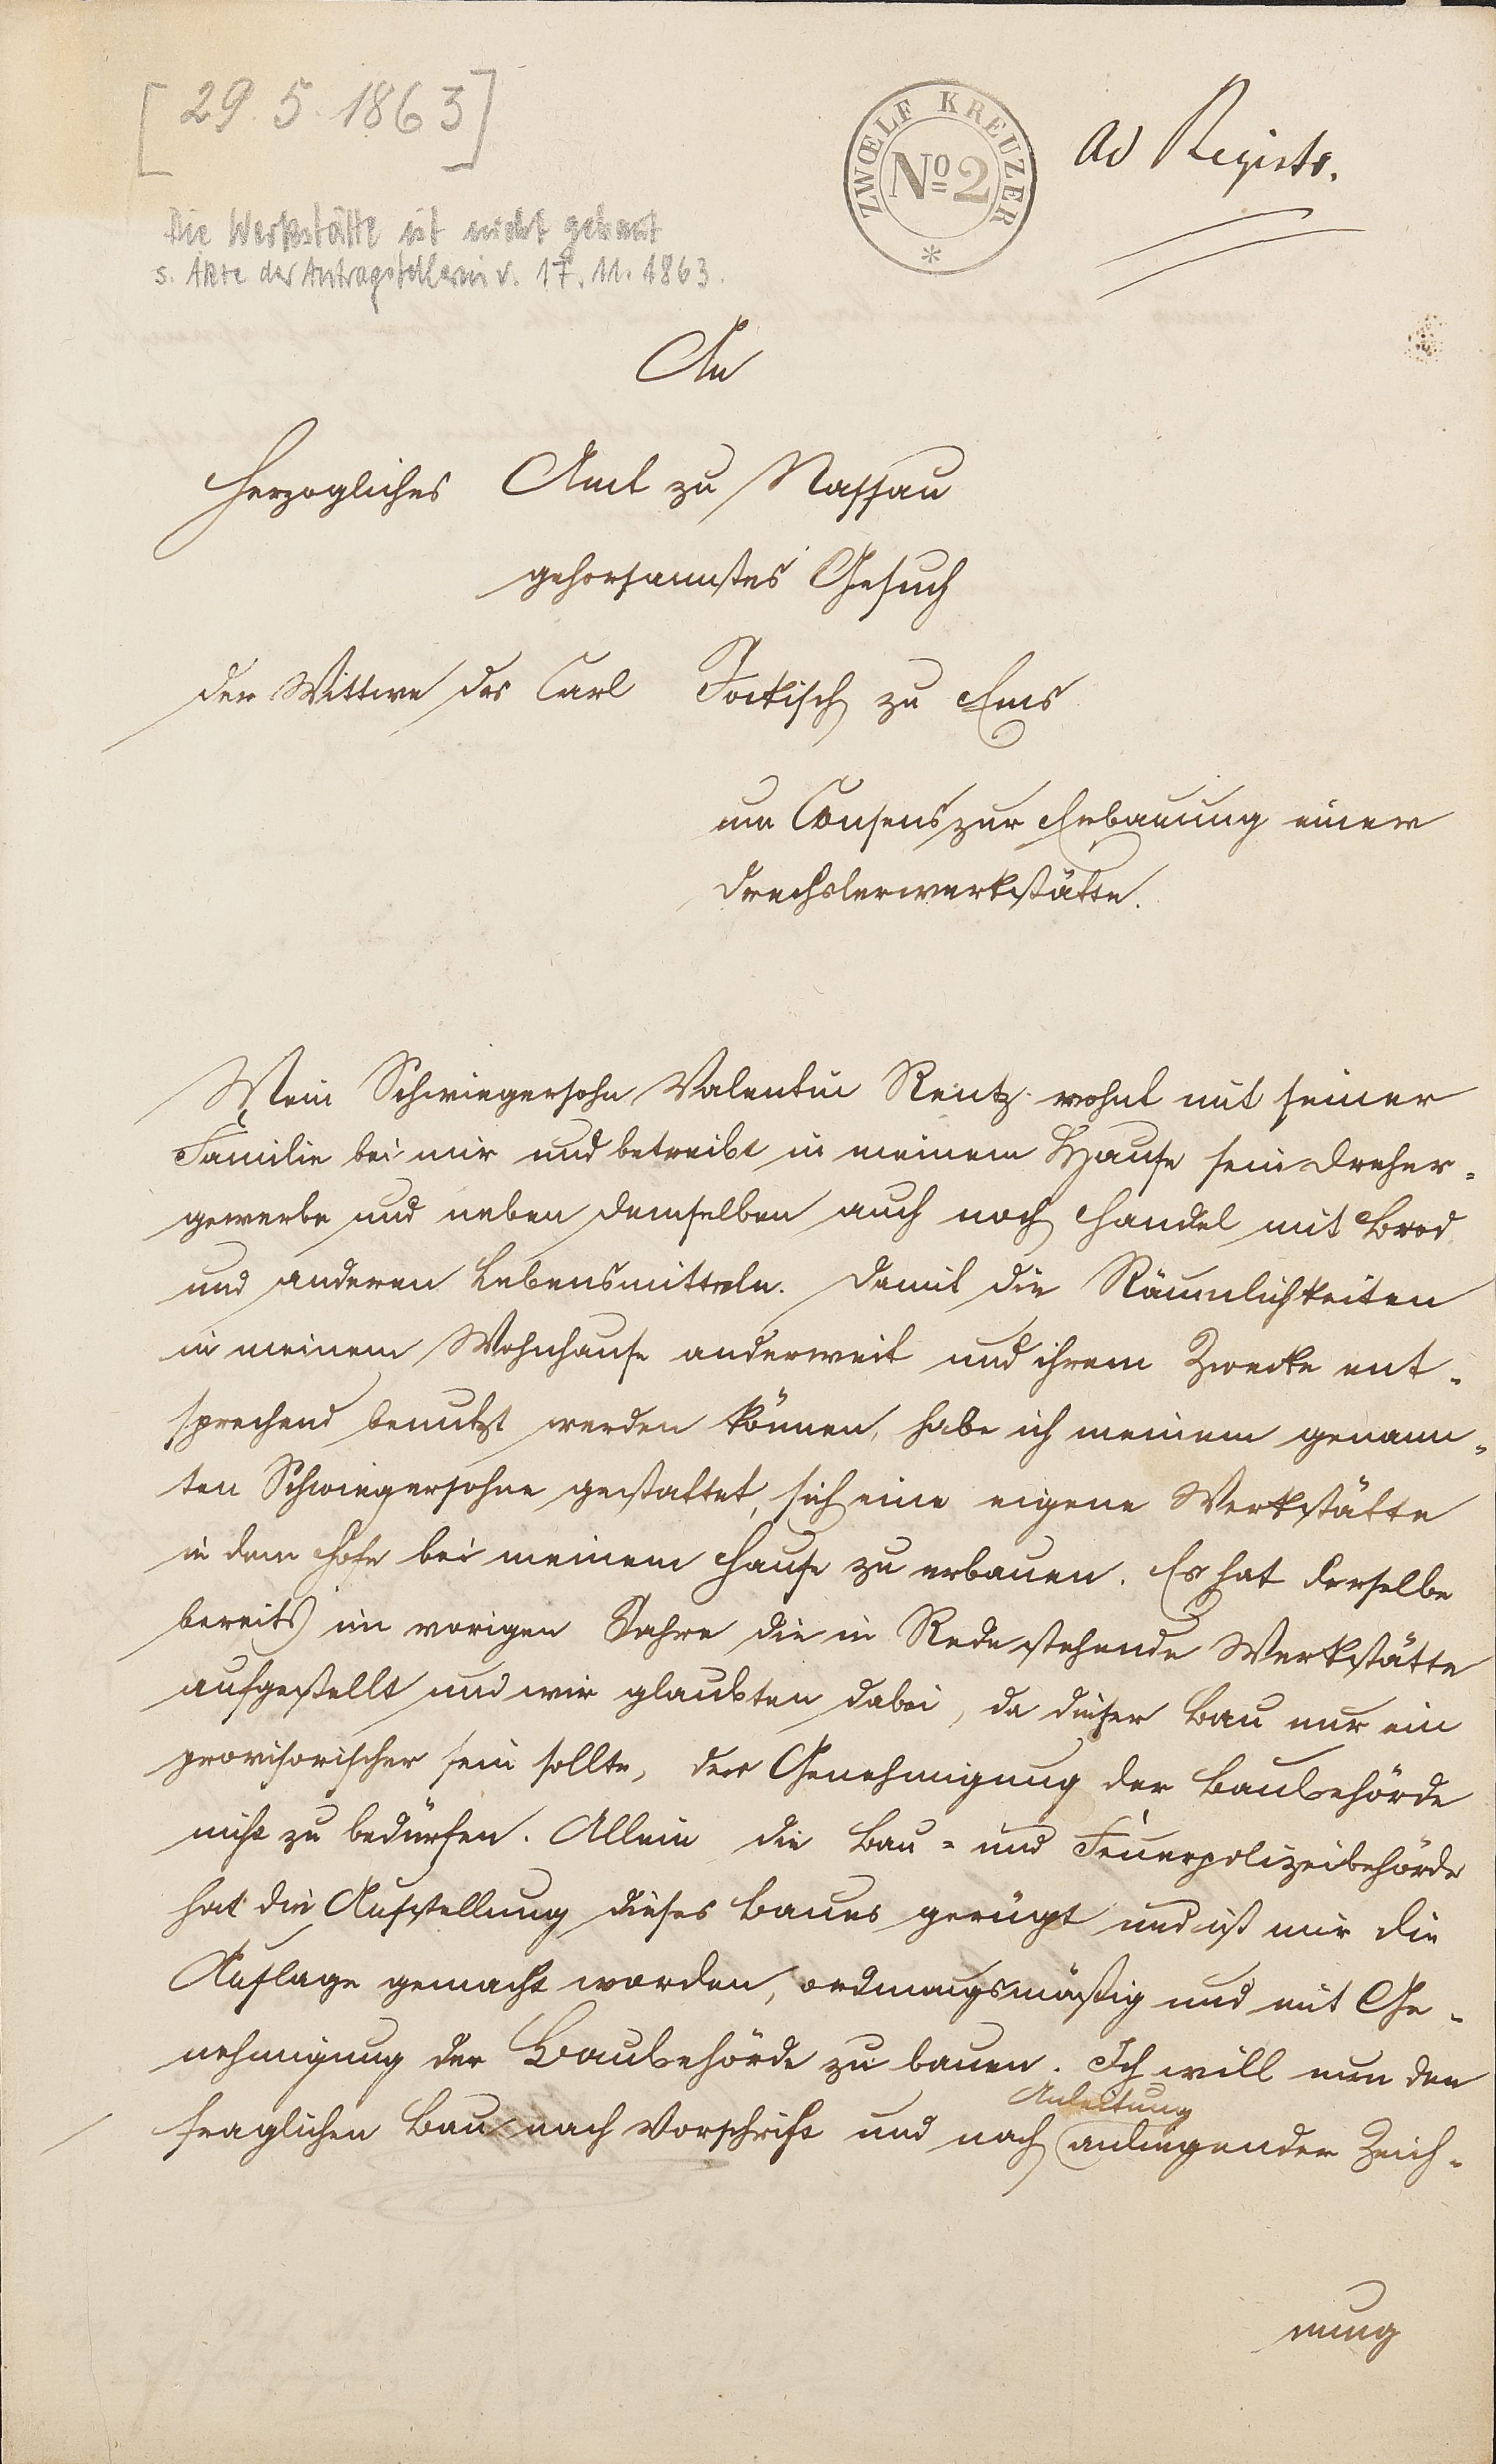 [29. 5. 1863]
ZWŒLF KREUZER
No 2
*
ad Registr.
Die Werkstätte ist nicht gebaut
s. Akte der Antragstellerin v. 17. 11. 1863.
An
Herzogliches Amt zu Nassau
gehorsamstes Gesuch
der Wittwe des Carl Jockisch zu Ems
um Consens zur Erbauung einer
Drechslerwerkstätte.
Mein Schwiegersohn Valentin Rentz wohnt mit seiner
Familie bei mir und betreibt in meinem Hause sein Dreher=
gewerbe und neben demselben auch noch Handel mit Brod
und anderen Lebensmitteln. Damit die Räumlichkeiten
in meinem Wohnhause anderweit und ihrem Zwecke ent=
sprechend benutzt werden können, habe ich meinem genann=
ten Schwiegersohne gestattet, sich eine eigene Werkstätte
in dem Hofe bei meinem Hause zu erbauen. Es hat derselbe
bereits im vorigen Jahre die in Rede stehende Werkstätte
aufgestellt und wir glaubten dabei, da dieser Bau nur ein
provisorischer sein sollte, der Genehmigung der Baubehörde
nicht zu bedürfen. Allein die Bau= und Feuerpolizeibehörde
hat die Aufstellung dieses Baues gerügt und ist mir die
Auflage gemacht worden, ordnungsmäßig und mit Ge=
nehmigung der Baubehörde zu bauen. Ich will nun den
Anleitung
fraglichen Bau nach Vorschrift und nach anliegender Zeich=
nung